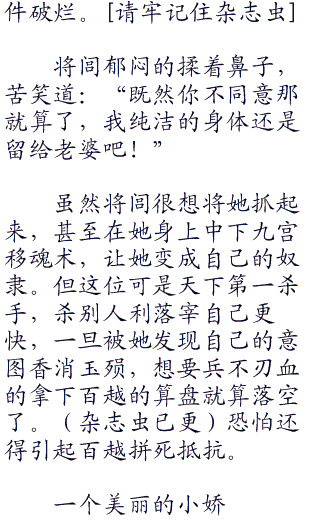 件破烂。[请牢记住杂志虫]
将闾郁闷的揉着鼻子，
苦笑道：“既然你不同意那
就算了，我纯洁的身体还是
留给老婆吧！”
虽然将闾很想将她抓起
来，甚至在她身上中下九宫
移魂术，让她变成自己的奴
隶。但这位可是天下第一杀
手，杀别人利落宰自己更
快，一旦被她发现自己的意
图香消玉殒，想要兵不刃血
的拿下百越的算盘就算落空
了。（杂志虫已更）恐怕还
得引起百越拼死抵抗。
一个美丽的小娇